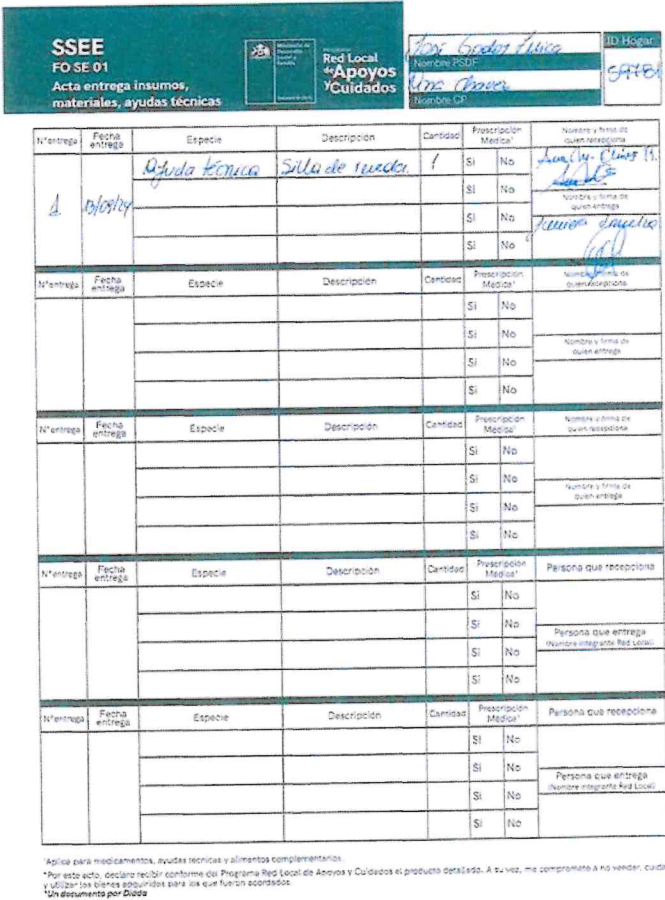 SSEE
FO SE 01
Acta entrega insumos,
materiales, ayudas técnicas
Ministerio de
Desarrollo
Social y
Familia
Red Local
de Apoyos
y Cuidados
José Godoy
Nombre PSDF
Nombre CP
ID Hogar
N°entrega Fecha entrega Especie Descripción Cantidad Prescripción Médica¹ Nombre y firma de quien recepciona
Ayuda técnica Silla de rueda. 1 Si No
Si No
Nombre y firma de quien entrega
1
Si No
Si No
N°entrega Fecha entrega Especie Descripción Cantidad Prescripción Médica¹ Nombre y firma de quien recepciona
Si No
Si No
Nombre y firma de quien entrega
Si No
Si No
N°entrega Fecha entrega Especie Descripción Cantidad Prescripción Médica¹ Nombre y firma de quien recepciona
Si No
Si No
Nombre y firma de quien entrega
Si No
Si No
N°entrega Fecha entrega Especie Descripción Cantidad Prescripción Médica¹ Persona que recepciona
Si No
Si No
Persona que entrega
(Nombre integrante Red Local)
Si No
Si No
N°entrega Fecha entrega Especie Descripción Cantidad Prescripción Médica¹ Persona que recepciona
Si No
Si No
Persona que entrega
(Nombre integrante Red Local)
Si No
Si No
¹Aplica para medicamentos, ayudas técnicas y alimentos complementarios.
*Por este acto, declaro recibir conforme del Programa Red Local de Apoyos y Cuidados el producto detallado. A su vez, me comprometo a no vender, cuida
y utilizar los bienes adquiridos para los que fueron acordados
*Un documento por Diada